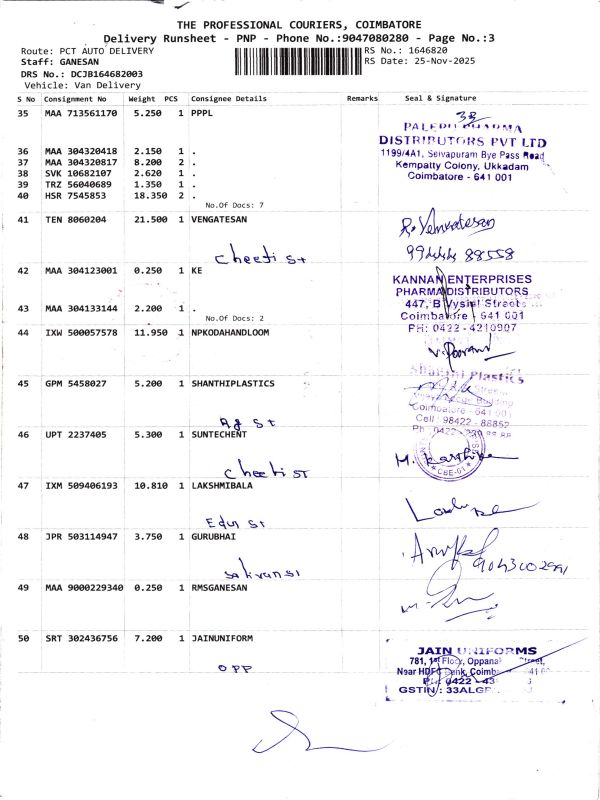 THE PROFESSIONAL COURIERS, COIMBATORE
Delivery Runsheet - PNP - Phone No.:9047080280 - Page No.:3
Route: PCT AUTO DELIVERY
RS No.: 1646820
Staff: GANESAN
RS Date: 25-Nov-2025
DRS No.: DCJB164682003
Vehicle: Van Delivery
S No Consignment No Weight PCS Consignee Details Remarks Seal & Signature
35 MAA 713561170 5.250 1 PPPL
PHARMA
DISTRIBUTORS PVT LTD
1199/4A1, Selvapuram Bye Pass Road
Kempatty Colony, Ukkadam
Coimbatore - 641 001
36 MAA 304320418 2.150 1 .
37 MAA 304320817 8.200 2 .
38 SVK 10682107 2.620 1 .
39 TRZ 56040689 1.350 1 .
40 HSR 7545853 18.350 2 .
No.Of Docs: 7
41 TEN 8060204 21.500 1 VENGATESAN
R. Venkatesan
88558
Cheeti St
42 MAA 304123001 0.250 1 KE
KANNAN ENTERPRISES
PHARMA DISTRIBUTORS
447, B Vysial Street
Coimbatore - 641 001
PH: 0422 - 4210907
43 MAA 304133144 2.200 1 .
No.Of Docs: 2
44 IXW 500057578 11.950 1 NPKODAHANDLOOM
45 GPM 5458027 5.200 1 SHANTHIPLASTICS
Shanthi Plastics
Building
Coimbatore - 641 001
Cell : 98422 - 86852
Ph : 0422
Rg St
46 UPT 2237405 5.300 1 SUNTECHENT
M. Karthik
CBE-01
Cheeti ST
47 IXM 509406193 10.810 1 LAKSHMIBALA
Edur St
48 JPR 503114947 3.750 1 GURUBHAI
49 MAA 9000229340 0.250 1 RMSGANESAN
50 SRT 302436756 7.200 1 JAINUNIFORM
JAIN UNIFORMS
781, 1st Floor, Oppana Street,
Near HDFC Bank, Coimb
0422 - 43
GSTIN : 33ALGP
OPP